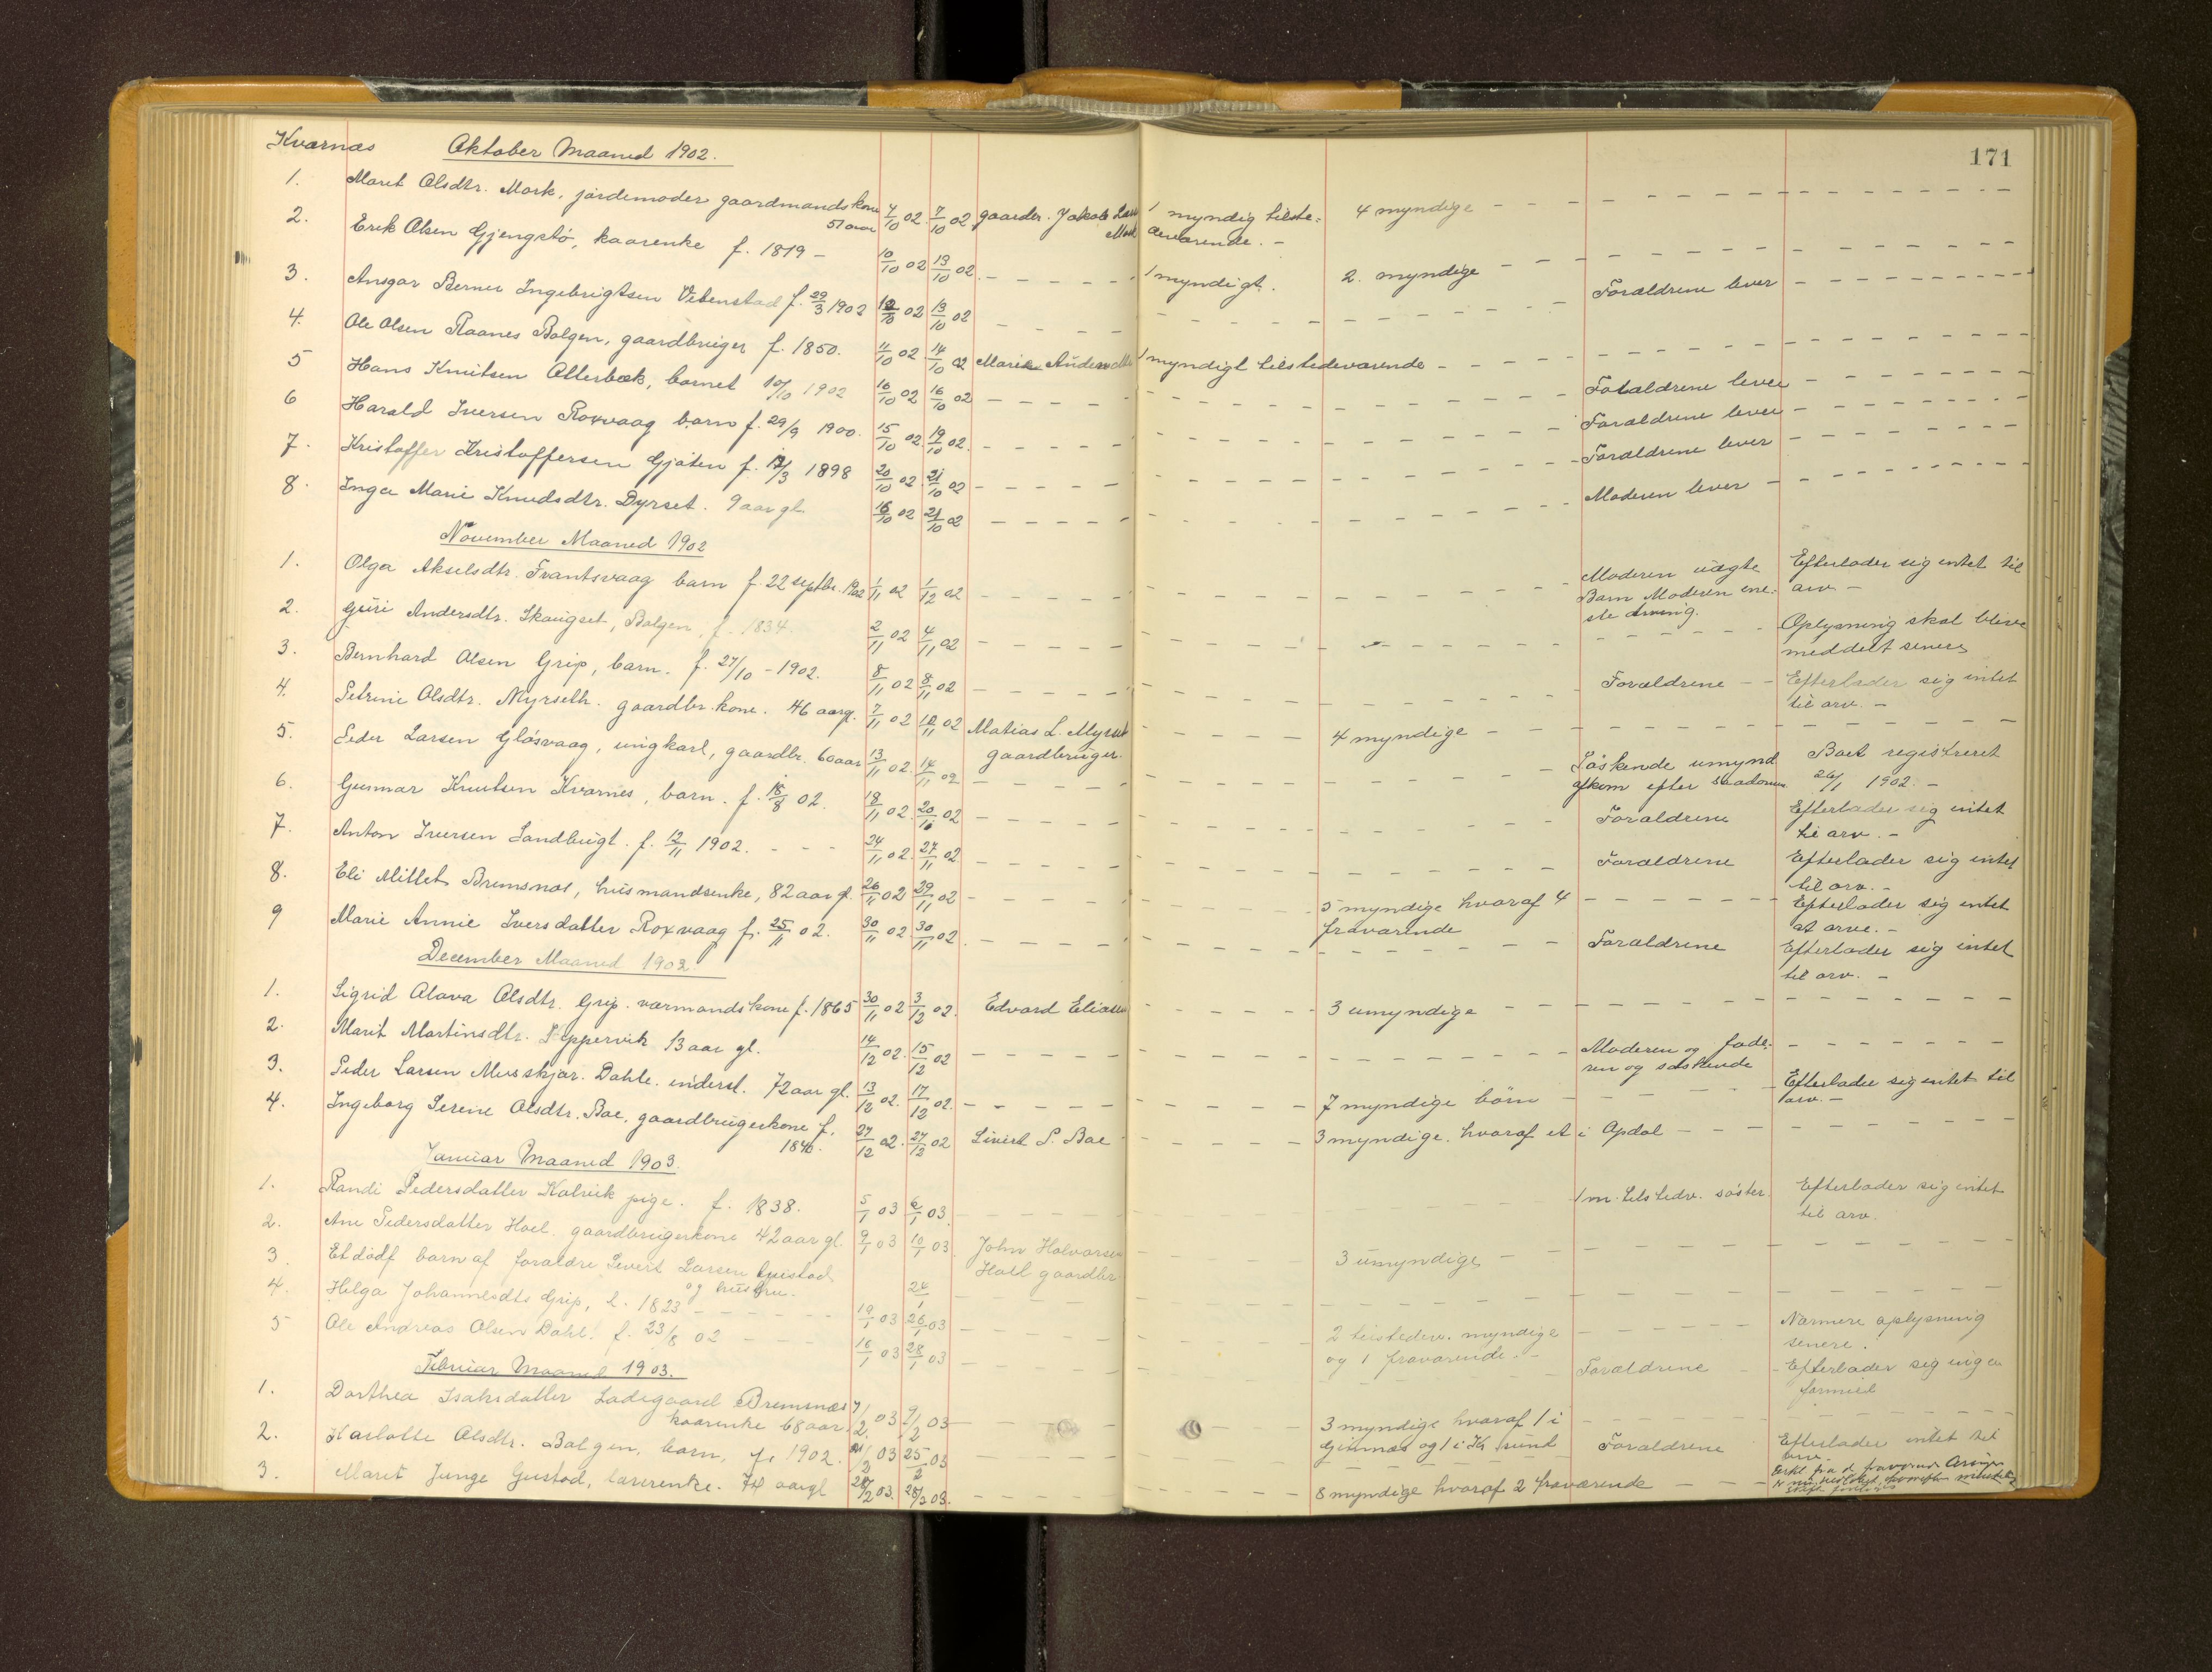 171
Kværnæs Oktober Maaned 1902.
1. Marit Olsdtr. Mork, jordemoder gaardmandskone 51 aar 4/10 02. 7/10 02 gaardbr. Jakob Mork 1 myndig tilstedeværende. – 4 myndige
2. Erik Olsen Gjengstø, kaarenke f. 1819 – 10/10 02 13/10 02. 1 myndigt. 2. myndige
3. Ansgar Berner Ingebrigtsen Vebenstad f. 29/3 1902 12/10 02 13/10 02 Forældrene lever
4. Ole Olsen Raanes Bolgen, gaardbruger f. 1850. 11/10 02 14/10 02 1 myndigt tilstedeværende
5 Hans Knutsen Otterbæk, barnet 10/10 1902 16/10 02 16/10 02 Forældrene lever
6 Harald Iversen Roxvaag barn f. 29/9 1900. 15/10 02. 19/10 02. Forældrene lever
7. Kristoffer Kristoffersen Gjøten f. 12/3 1898 20/10 02 21/10 02 Forældrene lever
8. Inga Marie Knudsdtr. Dyrset. 9 aar gl. 16/10 02 21/10 02 Moderen lever
November Maaned 1902
1. Olga Akselsdtr. Frantsvaag barn f. 22 septbr. 1902 1/11 02 1/12 02 Moderen uægte Barn Moderen eneste arving. Efterlader sig intet til arv –
2. Guri Andersdtr. Skaugset, Bolgen, f. 1834. 2/11 02 4/11 02 Oplysning skal blive meddelt senere
3. Bernhard Olsen Grip, barn. f. 27/10 – 1902. 8/11 02 8/11 02 Forældrene Efterlader sig intet til arv. –
4. Petrine Olsdtr. Myrseth. gaardbr. kone. 46 aar gl. 7/11 02 10/11 02 Matias L. Myrset gaardbruger. 4 myndige
5. Peder Larsen Gløsvaag, ungkarl, gaardbr. 60 aar 13/11 02. 14/11 02 Søskende umynd afkom efter saadanne Boet registreret 26/11 1902. –
6. Gunnar Knutsen Kvarnes, barn. f. 18/8 02. 18/11 02. 20/11 02 Forældrene Efterlader sig intet til arv. –
7. Anton Iversen Sandbugt. f. 12/11 1902. 24/11 02. 27/11 02 Forældrene Efterlader sig intet til arv. –
8. Eli Millet Bremsnæs, husmandsenke, 82 aar gl. 26/11 02 29/11 02 5 myndige hvoraf 4 fraværende Efterlader sig intet at arve. –
9 Marie Annie Iversdatter Roxvaag f. 25/11 02. 30/11 02. 30/11 02. Forældrene Efterlader sig intet til arv. –
December Maaned 1902
1. Sigrid Olava Olsdtr. Grip. værmandskone f. 1865 30/11 02 3/12 02. Edvard Eliassen 3 umyndige
2. Marit Martinsdtr. Steppervik 13 aar gl. 14/12 02. 15/12 02 Moderen og faderen og søskende
3. Peder Larsen Musskjær. Dahle. inderst. 72 aar gl. 13/12 02. 17/12 02. 7 myndige børn Efterlader sig intet til arv. –
4. Ingeborg Serene Olsdtr. Bae, gaardbrugerkone f. 1846. 27/12 02. 27/12 02 Sivert P. Bae 3 myndige. hvoraf et i Opdal
Januar Maaned 1903.
1. Randi Pedersdatter Kalvik pige. f. 1838. 5/1 03 6/1 03. 1 m. tilstedv. søster. Efterlader sig intet til arv.
2. Ane Pedersdatter Hoel. gaardbrugerkone 42 aar gl. 9/1 03 10/1 03. John Halvorsen Hoel gaardbr. 3 umyndige
3 Et dødf barn af forældre Sivert Larsen og hustru. 24/1
4. Helga Johannesdtr Grip, f. 1823 19/1 03 26/1 03 2 tilstedev. myndige og 1 fraværende. – Nærmere oplysning senere.
5 Ole Andreas Olsen Dahl. f. 23/8 02 16/1 03 28/1 03 Forældrene Efterlader sig ingen formue
Februar Maaned 1903.
1. Dorthea Isaksdatter Ladegaard Bremsnæs kaarenke 68 aar. 7/2 03 9/2 03 3 myndige hvoraf 1 i Gimnæs og 1 i Kr sund
2. Karlotte Olsdtr. Bolgen, barn, f. 1902. 21/2 03 25/2 03 Forældrene Efterlader intet til arv.
3. Maret Junge Gustad, lærerenke. 74 aar gl 24/2 03. 28/2 03. 8 myndige hvoraf 2 fraværende Erkl fra de fraværende Arvinger